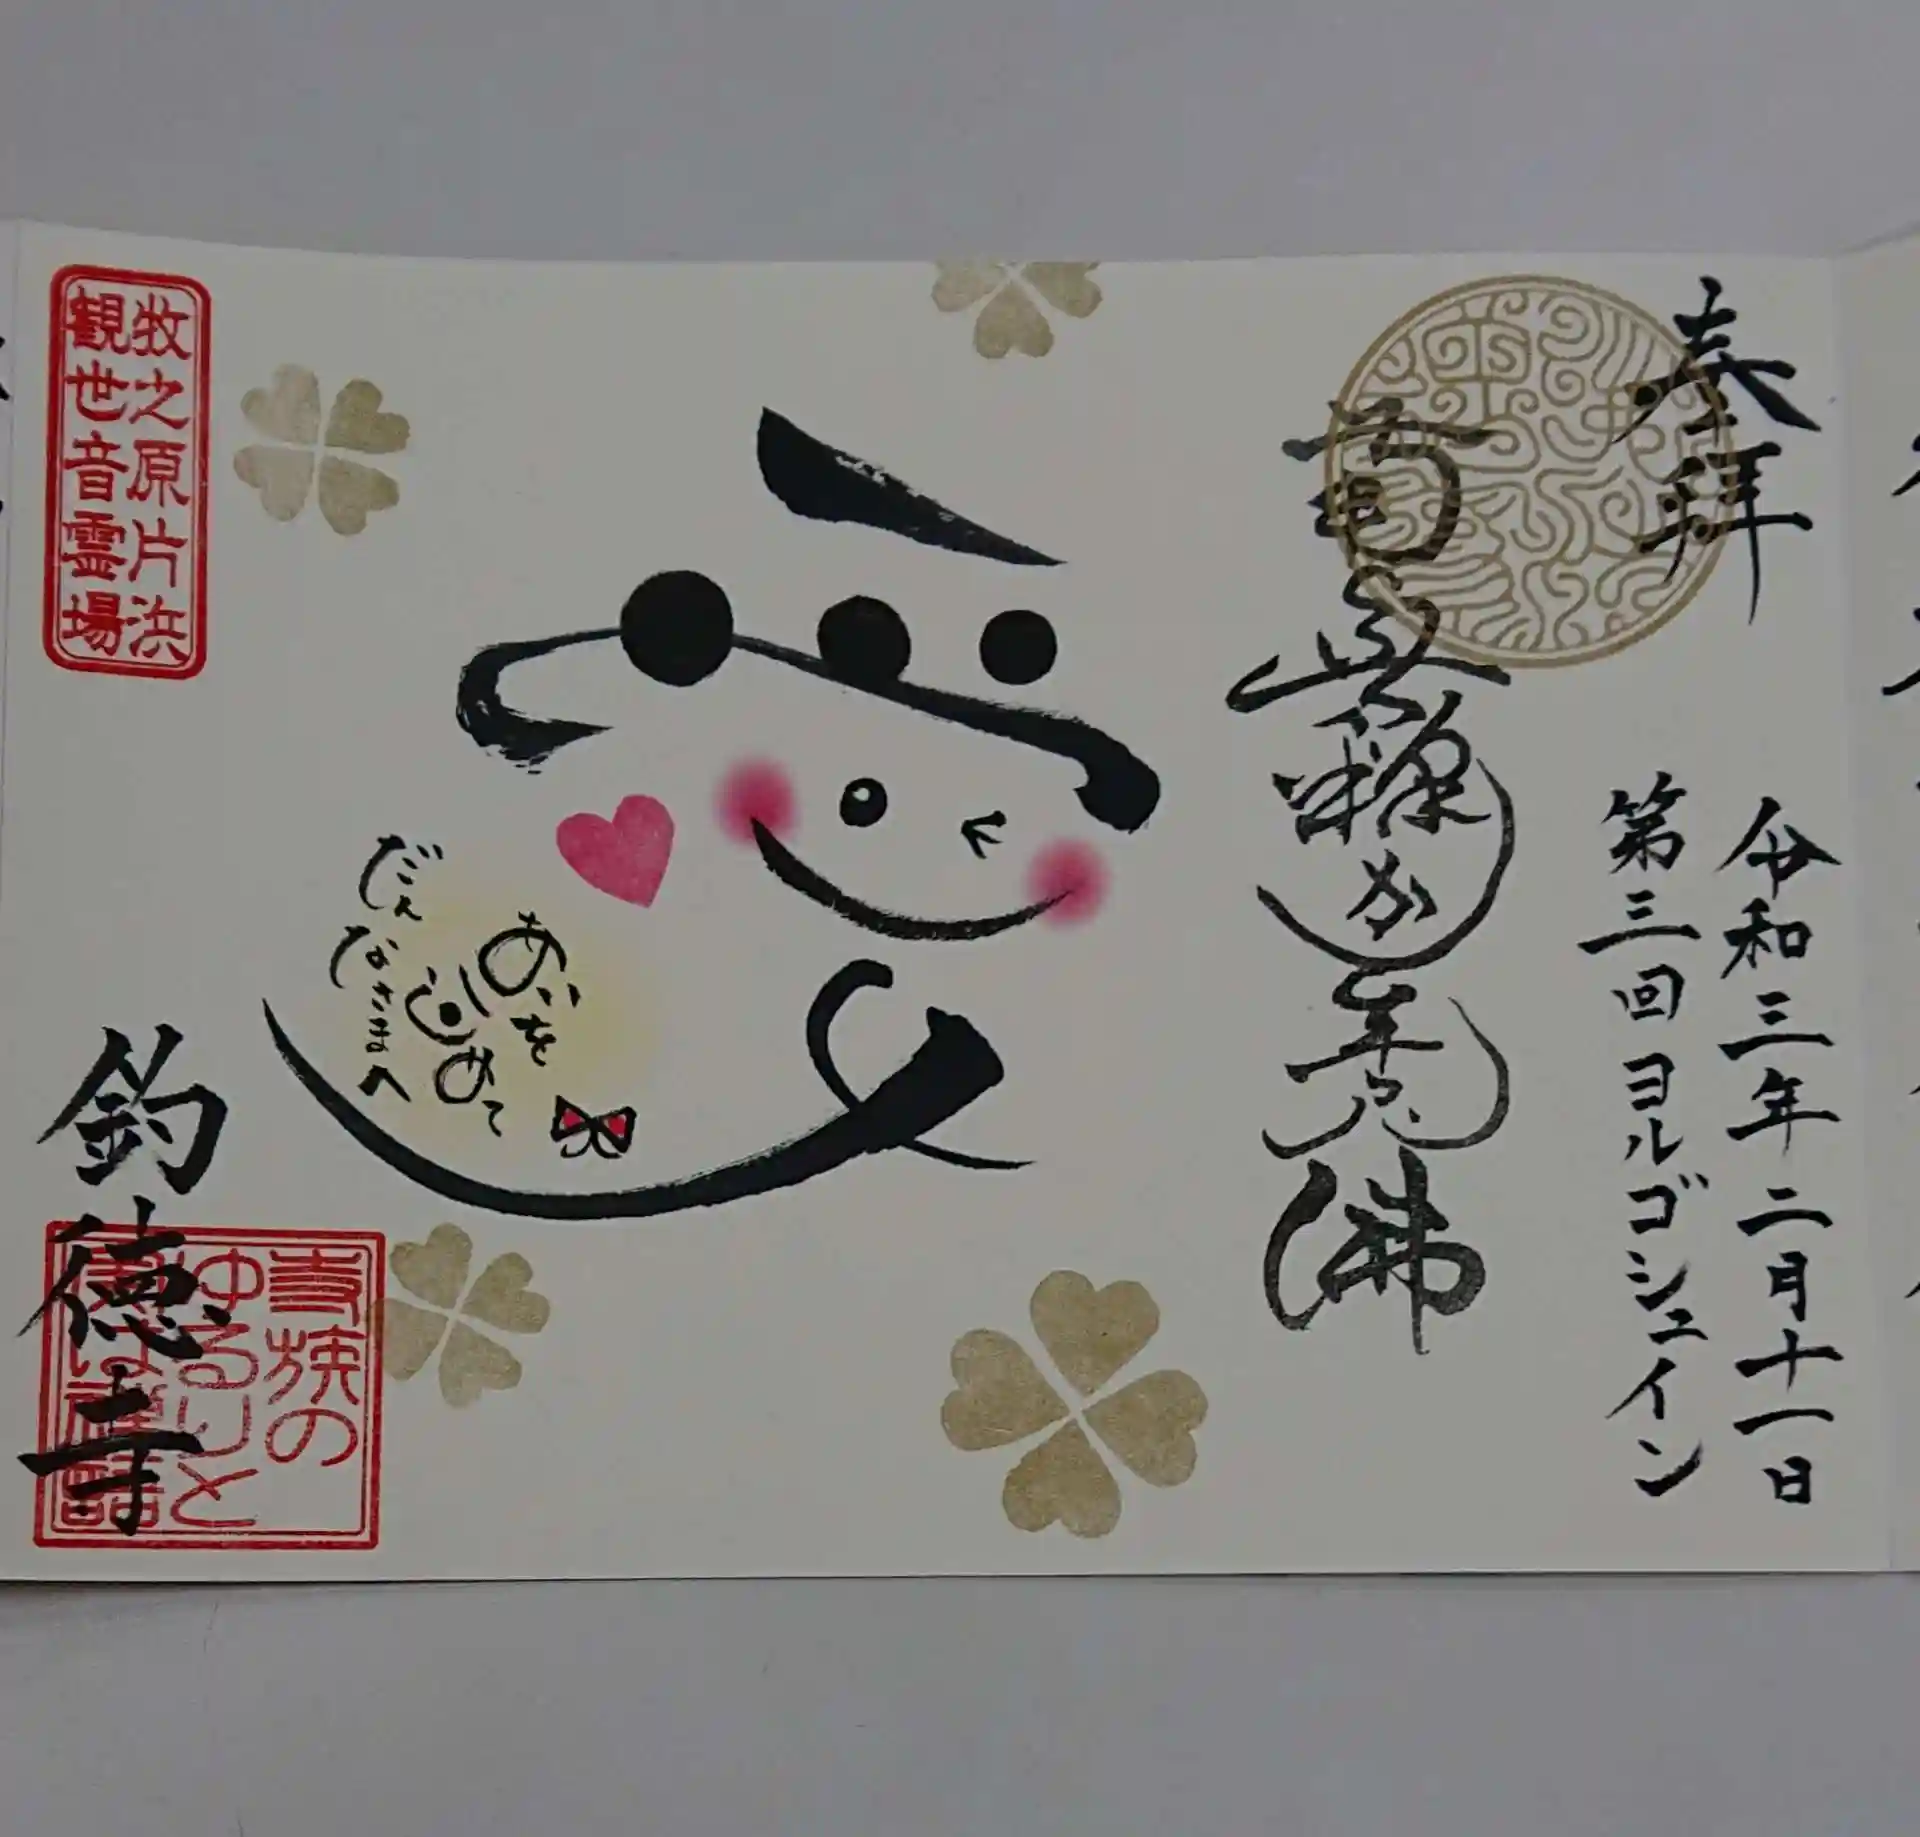 奉拝
令和三年二月十一日
第三回ヨルゴシュイン
南無釈迦牟尼佛
あいを
こめて
だんなさまへ
牧之原片浜
観世音霊場
釣徳寺
寺族の
ゆるりと